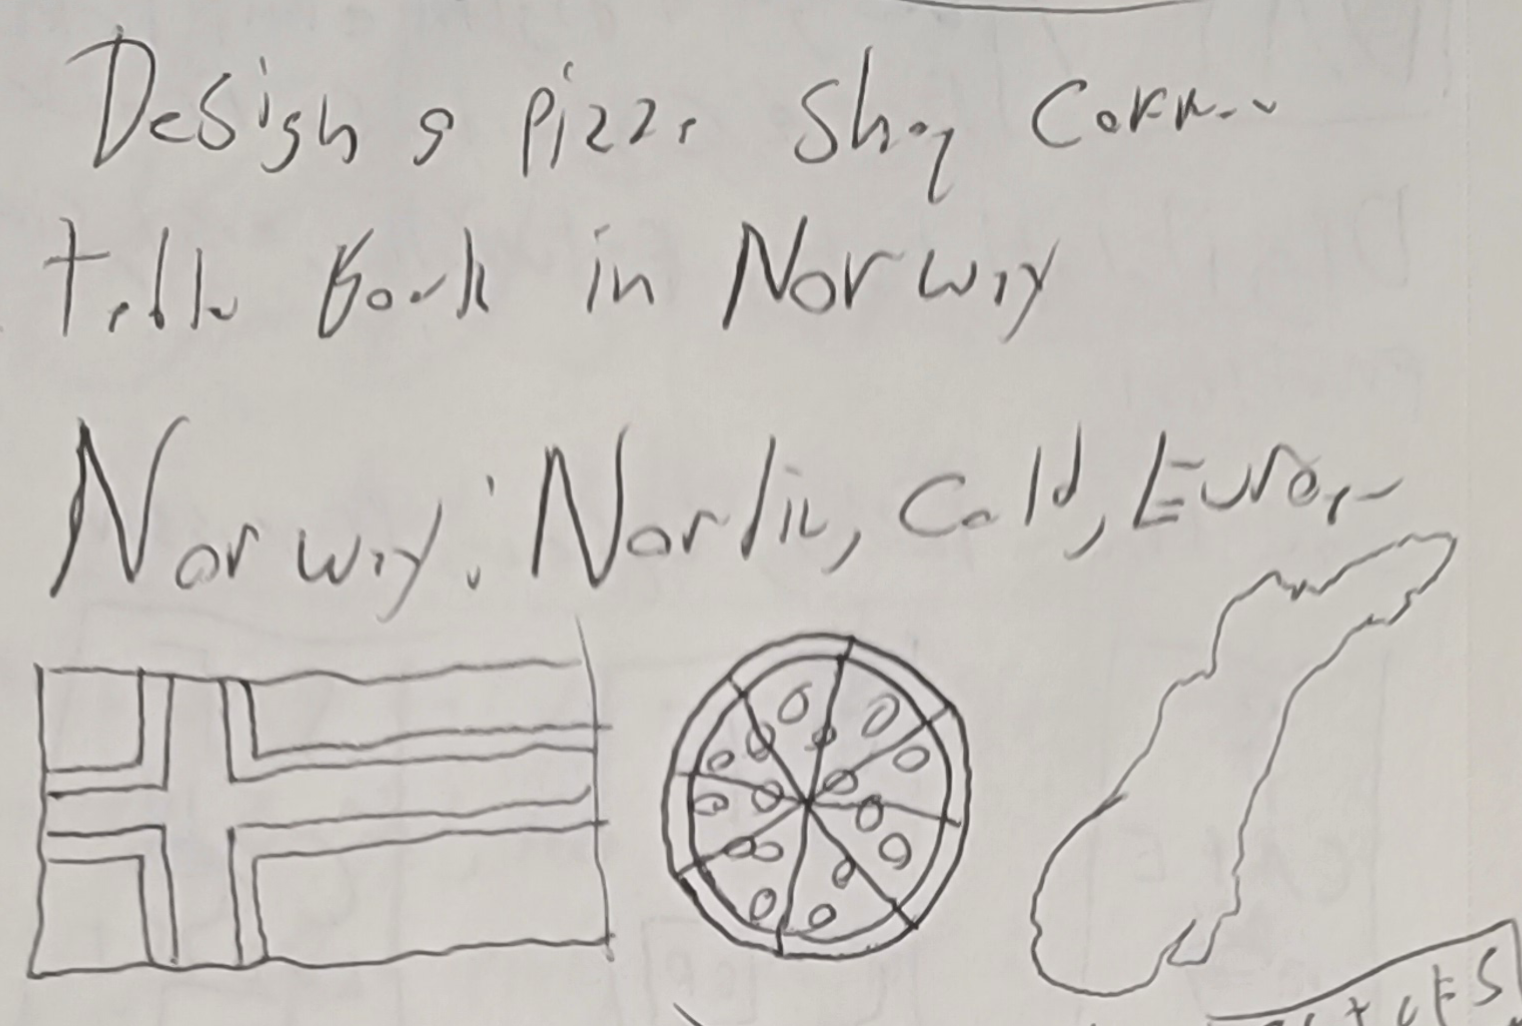 Design a pizza shop corner
table book in Norway
Norway: Nordic, Cold, Europe